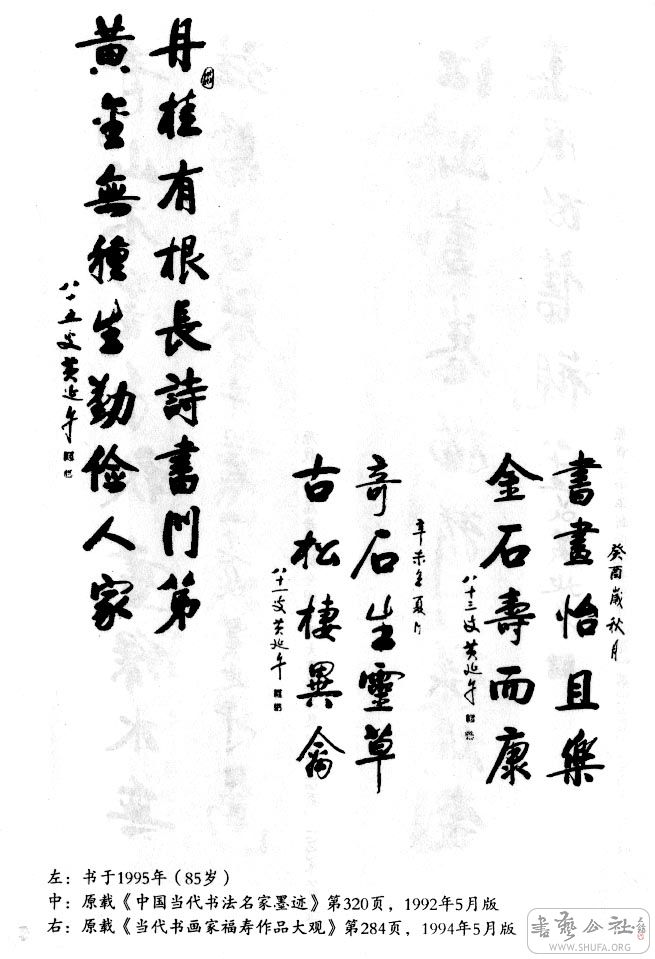 癸酉歲秋月
書畫怡且樂
金石壽而康
八十三叟黄延午
奇石生靈草
古松棲異禽
八十一叟黄延午
丹桂有根長詩書門第
黄金無種生勤儉人家
八十五叟黄延午
左：书于1995年（85岁）
中：原载《中国当代书法名家墨迹》第320页，1992年5月版
右：原载《当代书画家福寿作品大观》第284页，1994年5月版
書藝公社
WWW.SHUFA.ORG